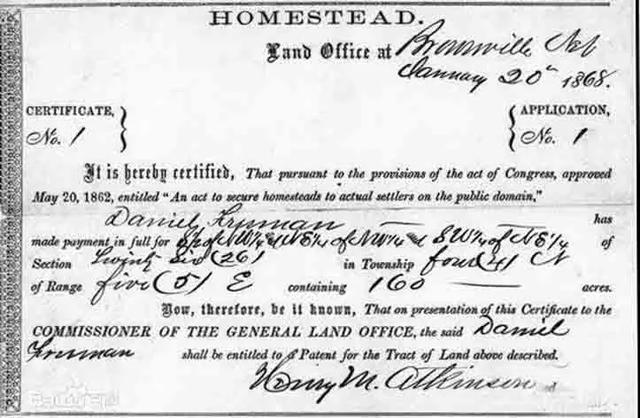 HOMESTEAD.
Land Office at Brownville Neb
January 20th 1868.
CERTIFICATE, No. 1
APPLICATION, No. 1
It is hereby certified, That pursuant to the provisions of the act of Congress, approved
May 20, 1862, entitled "An act to secure homesteads to actual settlers on the public domain,"
Daniel Freeman has
made payment in full for S½ of NW¼ & NE¼ of NW¼ and SW¼ of NE¼ of
Section Twenty Six (26) in Township four (4) N
of Range five (5) E containing 160 acres.
Now, therefore, be it known, That on presentation of this Certificate to the
COMMISSIONER OF THE GENERAL LAND OFFICE, the said Daniel
Freeman shall be entitled to a Patent for the Tract of Land above described.
Henry M. Atkinson